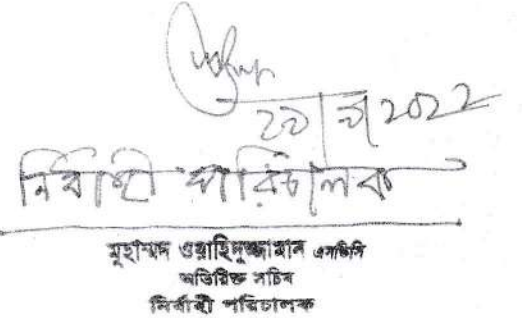 নির্বাহী পরিচালক
মুহাম্মদ ওয়াহিদুজ্জামান এনডিসি
অতিরিক্ত সচিব
নির্বাহী পরিচালক